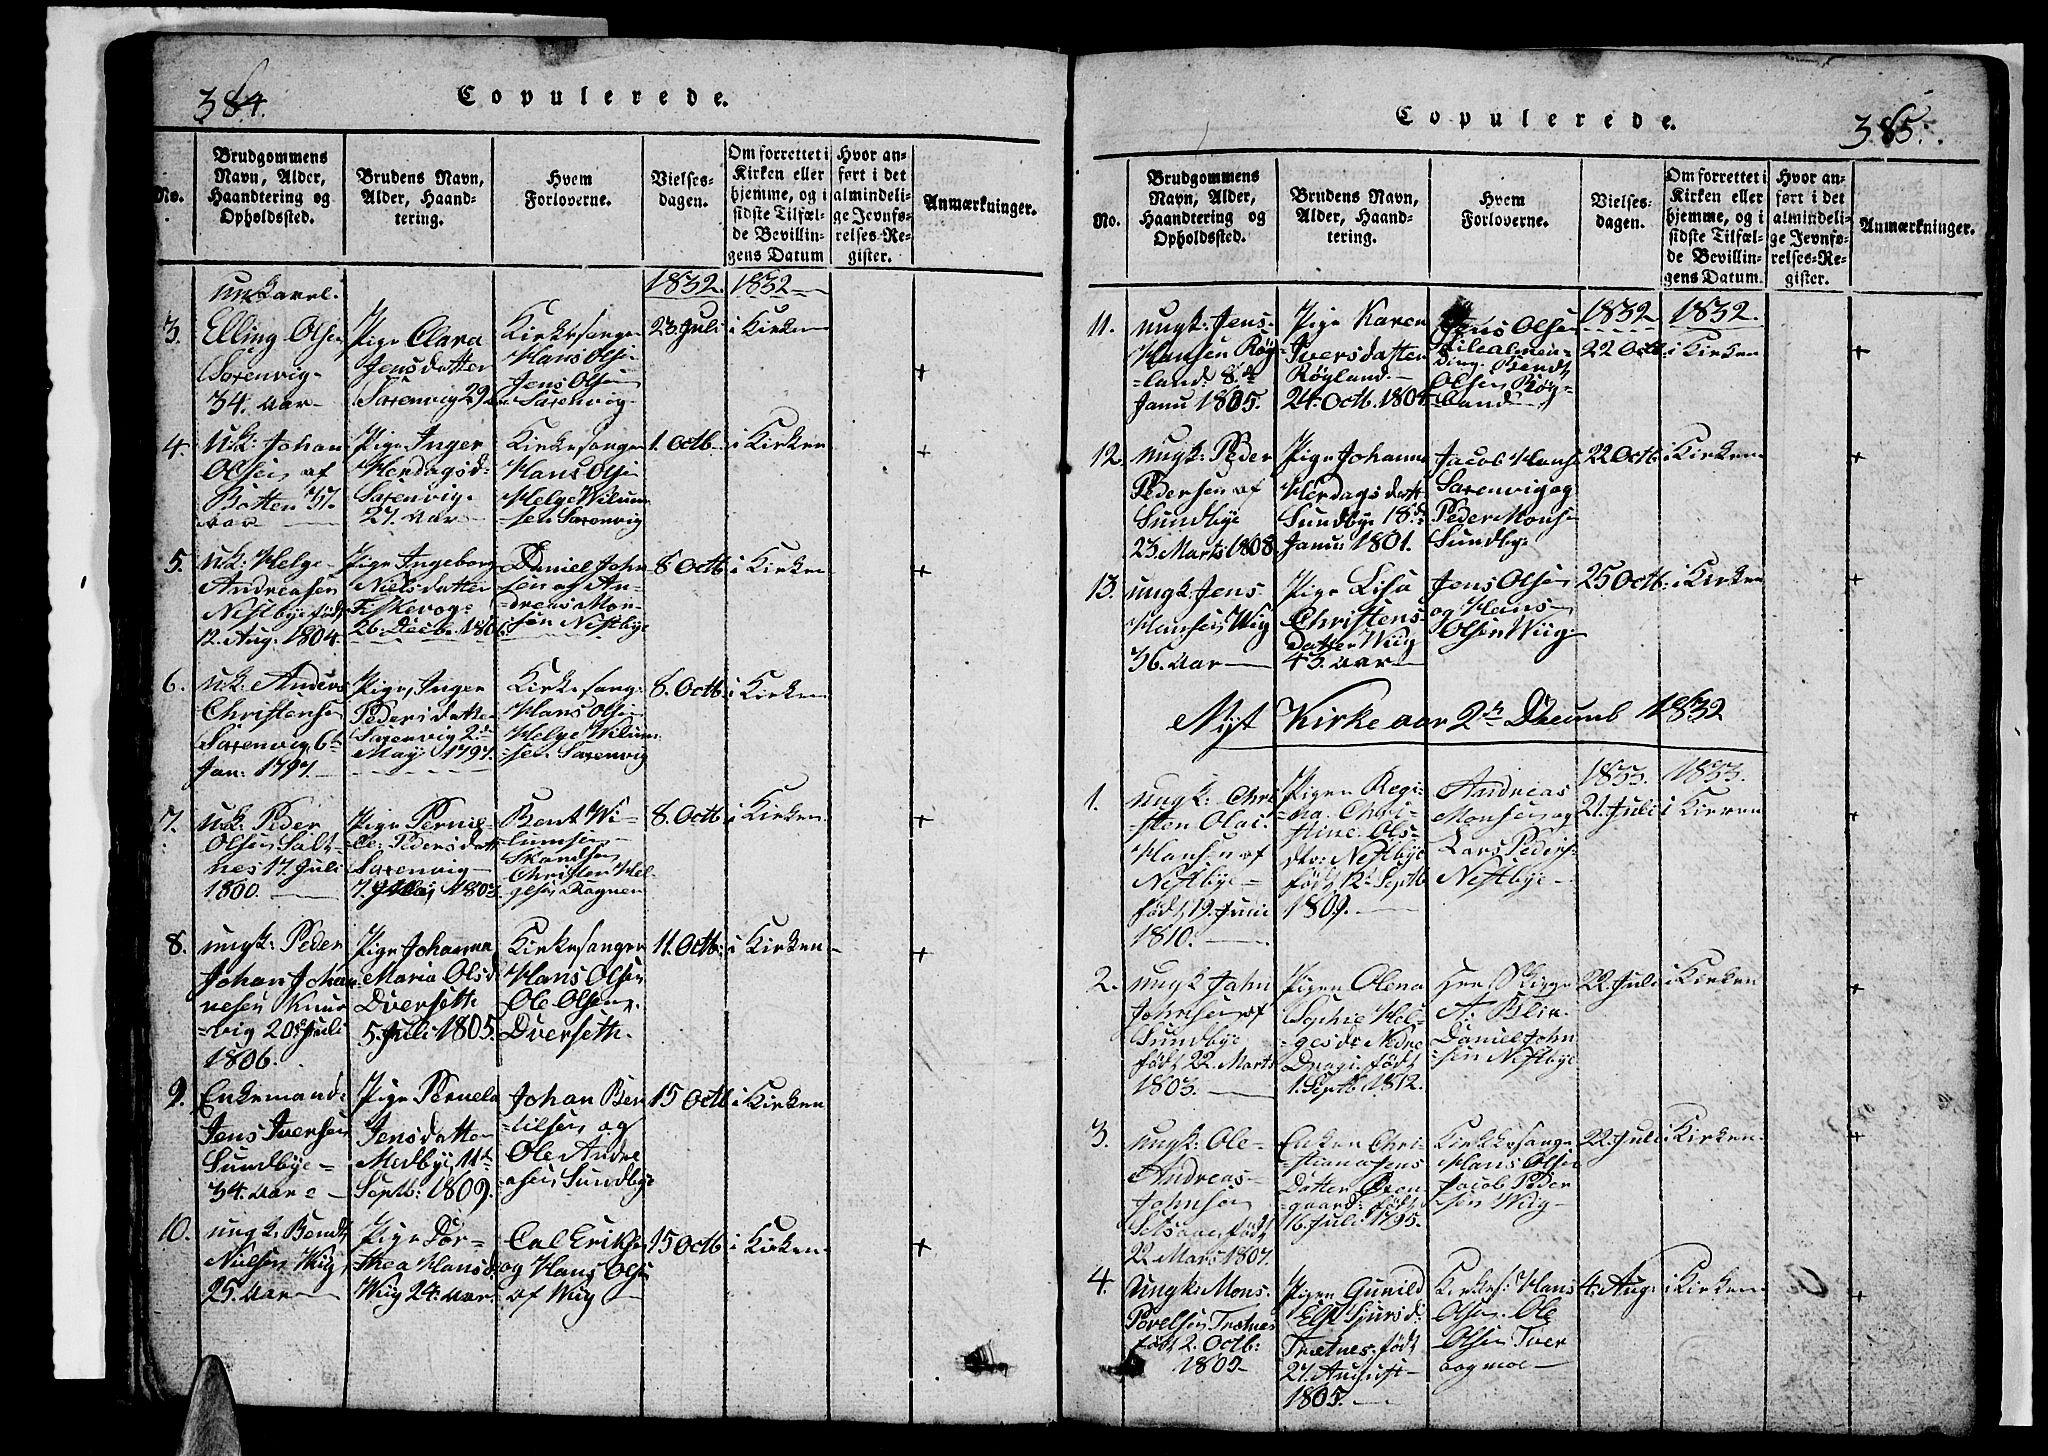 384.
Copulerede.
No.
Brudgommens
Navn, Alder,
Haandtering og
Opholdssted.
Brudens Navn,
Alder, Haand-
tering.
Hvem
Forloverne.
Vielses-
dagen.
Om forrettet i
Kirken eller
hjemme, og i
sidste Tilfæl-
de Bevillin-
gens Datum
Hvor an-
ført i det
almindeli-
ge Jevnfø-
relses-Re-
gister.
Anmærkninger.
1832. 1832
3.
Ungkarel.
Elling Olsen
Saxenvig
34. Aar
Pige Clara
Jensdatter
Saxenvig 29
Kirkesanger
Hans Olsen
Jens Olsen
Saxenvig
23. Juli
i Kirken
+
4.
U.k: Johan
Olsen af
Botten 37.
Aar
Pige Inger
Herdagsd:
Saxenvig
27. Aar
Kirkesanger
Hans Olsen
Helge Wilum-
sen Saxenvig
1. Octb
i Kirken
+
5.
U.k: Helge
Andreasen
Nestbye født
12. Aug. 1804.
Pige Ingebor
Nielsdatter
Fiskevog
26. Decbr. 1806
Daniel John
sen og An-
dreas Mon-
sen Nestbye
8 Octb
i Kirken
+
6.
U.k: Anders
Christensen
Saxenvig 6te
Jan: 1797.
Pige, Inger
Pedersdatter
Saxenvig 2d
May 1797.
Kirkesang:
Hans Olsen
Helge Wilum-
sen. Saxenvig
8. Octb:
i Kirken
7.
U.k: Peder
Olsen Salt-
nes 17. Juli
1800.
Pige Pernil-
le: Pedersdatt
Saxenvig
1803.
Bent Wi-
lumsen
Skandsen
Christen Hel-
gesen Kogner
8. Octb
i Kirken
+
8.
Ungk: Peder
Johan Johan
nesen Knur
=vig 20de Juli
1806.
Pige Johanna
Maria Olsd
Dverseth
5. Juli 1805.
Kirkesanger
Hans Olsen
Ole Olsen.
Dverseth.
11. Octb:
i Kirken
+
9.
Enkemand:
Jens Iversen
Sundbye
34. Aar
Pige Pernela
Jensdatter
Medbye 11te
Septb: 1809.
Johan Ber
tilsen og
Ole Andre
asen Sundbye
15 Octb
i Kirken
10.
Ungk. Bendt
Nielsen Wiig
25. Aar
Pige Dor-
thea Hansd.
Wiig 24. Aar.
Erikse
og Hans Olse
af Wiig
15 Octb
i Kirken
+
385.
Copulerede.
No.
Brudgommens
Navn, Alder,
Haandtering og
Opholdssted.
Brudens Navn,
Alder, Haand-
tering.
Hvem
Forloverne.
Vielses-
dagen.
Om forrettet i
Kirken eller
hjemme, og i
sidste Tilfæl-
de Bevillin-
gens Datum.
Hvor an-
ført i det
almindeli-
ge Jevnfø-
relses-Re-
gister.
Anmærkninger.
1832 1832.
11.
Ungk: Jens.
Hansen Røg
=land. 8.de
Janu 1805.
Pige Karen
Iversdatter
Røgland.
24. Octb. 1804
Jens Olsen
Lilealmen-
ding. Bendt
Olsen Røg-
land
22 Octb
i Kirken
+
12.
Ungk: Peder
Pedersen af
Sundbye
23 Marts 1808.
Pige Johanna
Herdagsdatt
Sundbye 18de
Janu: 1801.
Jacob Hanse
Saxenvig og
Peder Monse
Sundby
22 Octb.
i Kirken
+
13.
Ungk. Jens
Hansen Wiig
36. Aar
Pige Lisa
Christens-
datter Wiig
43. Aar
Jens Olsen
og Hans
Olsen Wiig
25 Octb:
i Kirken
+
Nyt Kirkeaar 2den Decemb 1832
1833. 1833.
1.
Ungk: Chri
=sten Olai:
Hansen af
Nestbye
født 19. Juni
1810.
Pigen Regi-
na. Chri-
stine. Ols-
dtr: Nestbye
født 12. Septb
1809.
Andreas
Monsen og
Lars Peders-
Nestbye
21. Juli
i Kirken
+
2.
Ungk. Jahn
Johnsen af
Sundbye
født 22. Marts
1803.
Pigen Olena
Sophie Hel-
gesdr Nedre
født
1. Septb 1812.
A. Blix.
Daniel John
=sen Nestbye
22. Juli
i Kirken
+
3.
Ungk: Ole
Andreas
Johnsen
født
22. Mars 1807.
Enken Chri-
=stiana Jens
Datter
født
16. Juli 1795.
Kirkesange
Hans Olsen
Jacob Peder
=sen Wiig
22. Juli
i Kirken
+
4.
Ungk: Mons.
Povelsen Trætnes
født 2. Octb:
1805
Pigen Gunild
Else Sjursd:
Trætnes. født
27. August
1805.
Kirkes: Hans
Olsen. Ole
Olsen Tver
aagmoe
4. Aug:
i Kirken
+